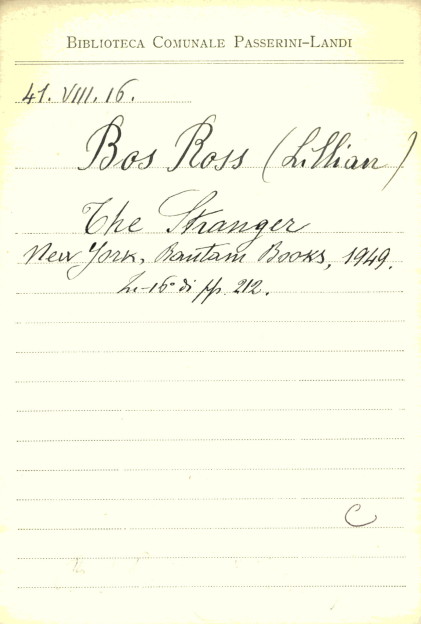 BIBLIOTECA COMUNALE PASSERINI-LANDI
41. VIII. 16.
Bos Ross (Lillian)
The Stranger
New York, Bantam Books, 1949.
In-16° di pp. 212.
C